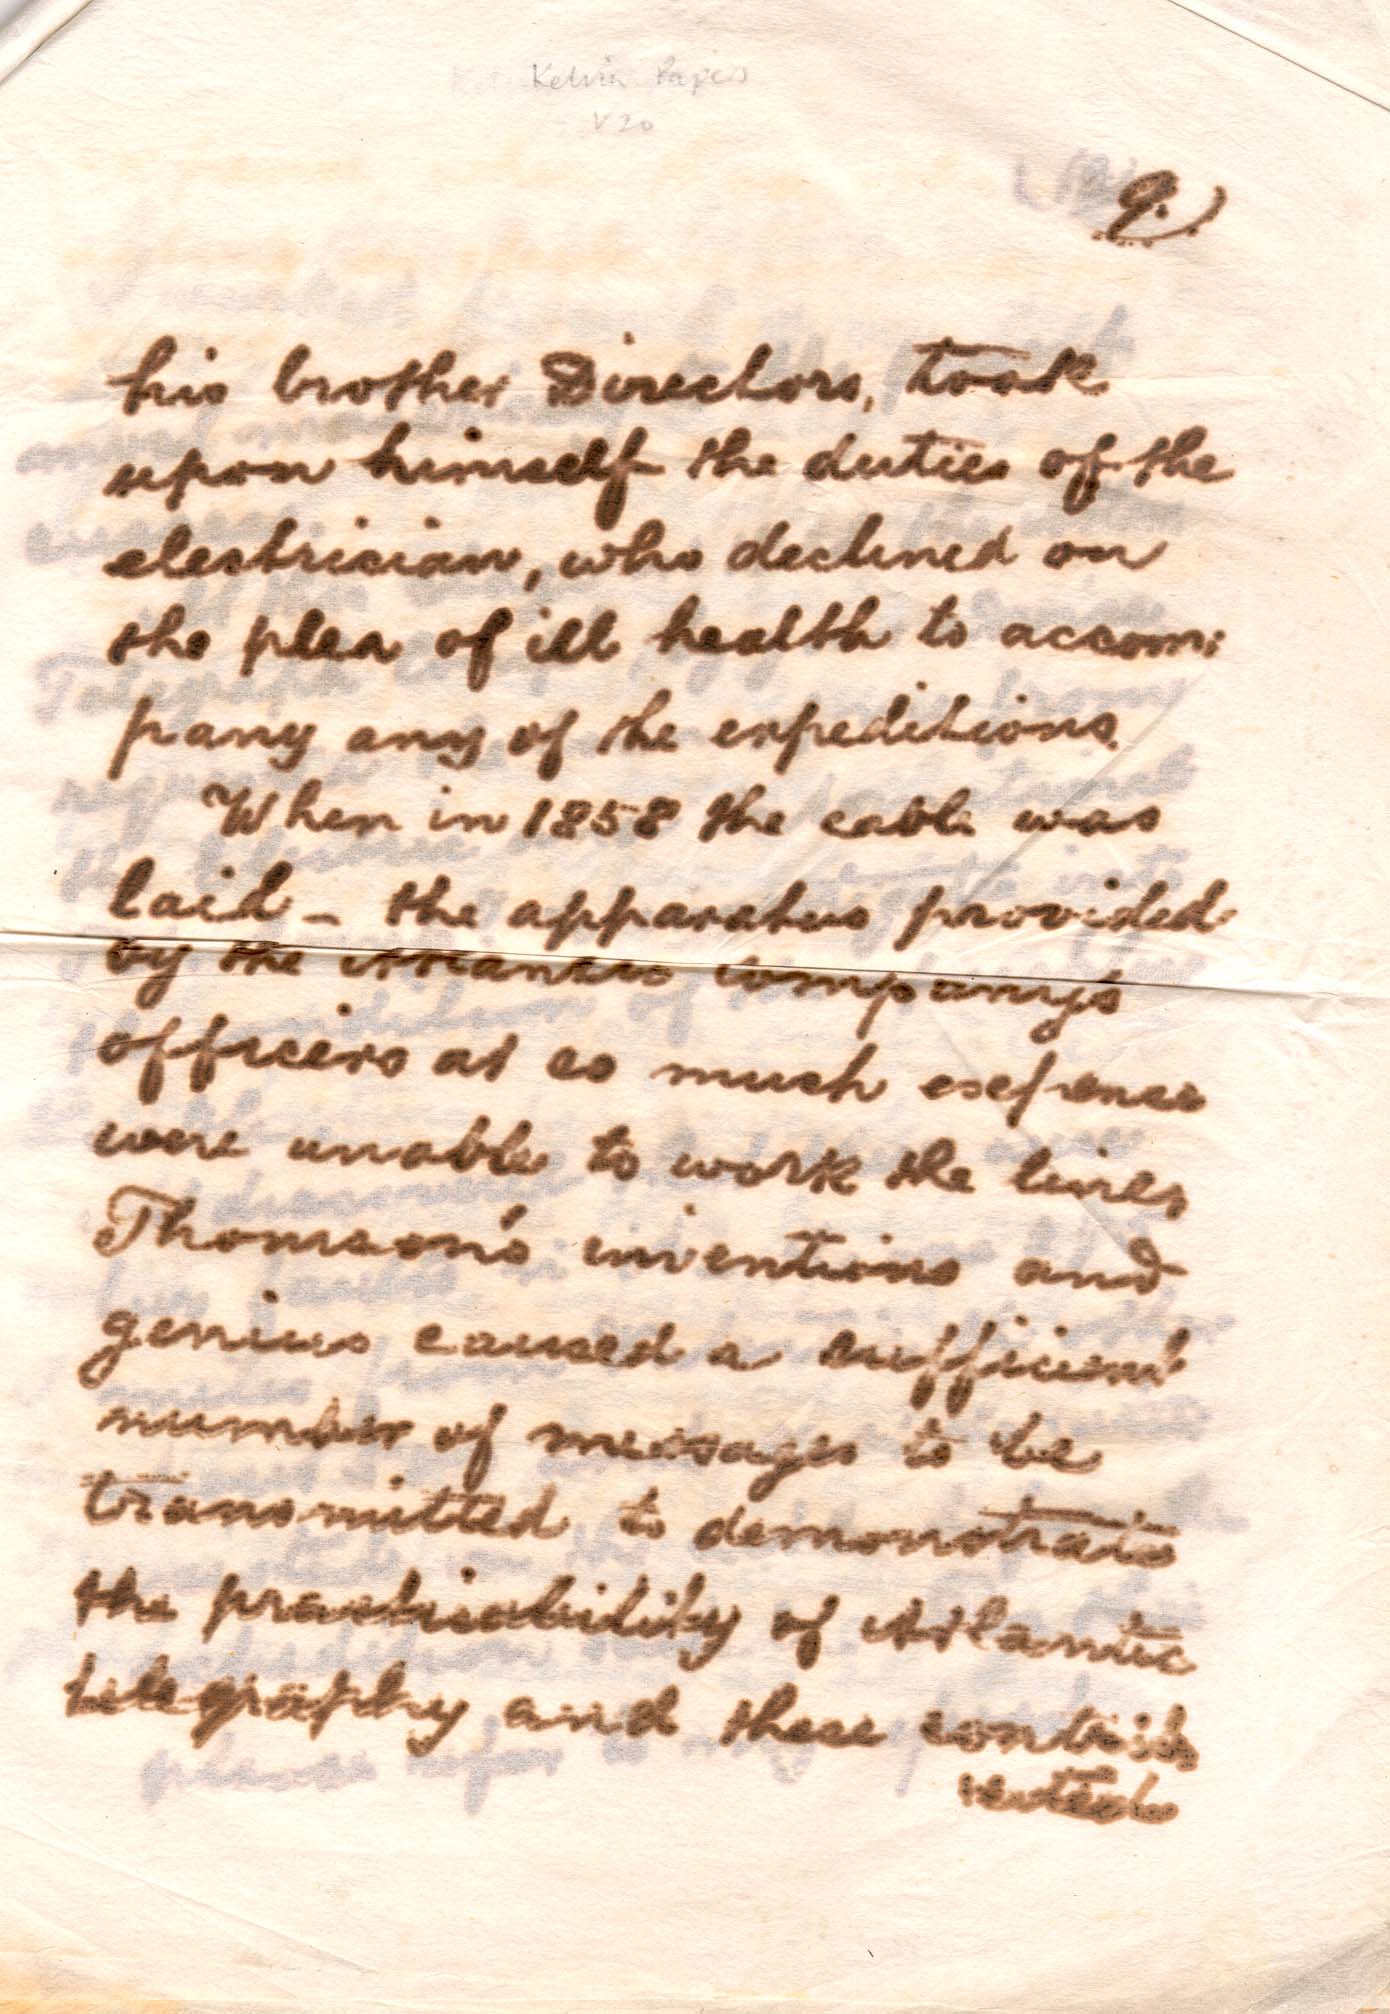 Kelvin Papers
V20
9.
his brother Directors, took
upon himself the duties of the
electrician, who declined on
the plea of ill health to accom:
pany any of the expeditions.
When in 1858 the cable was
laid - the apparatus provided
by the Atlantic Company's
officers at so much expense
were unable to work the lines,
Thomson's inventions and
genius caused a sufficient
number of messages to be
transmitted to demonstrate
the practicability of Atlantic
telegraphy and these contrib